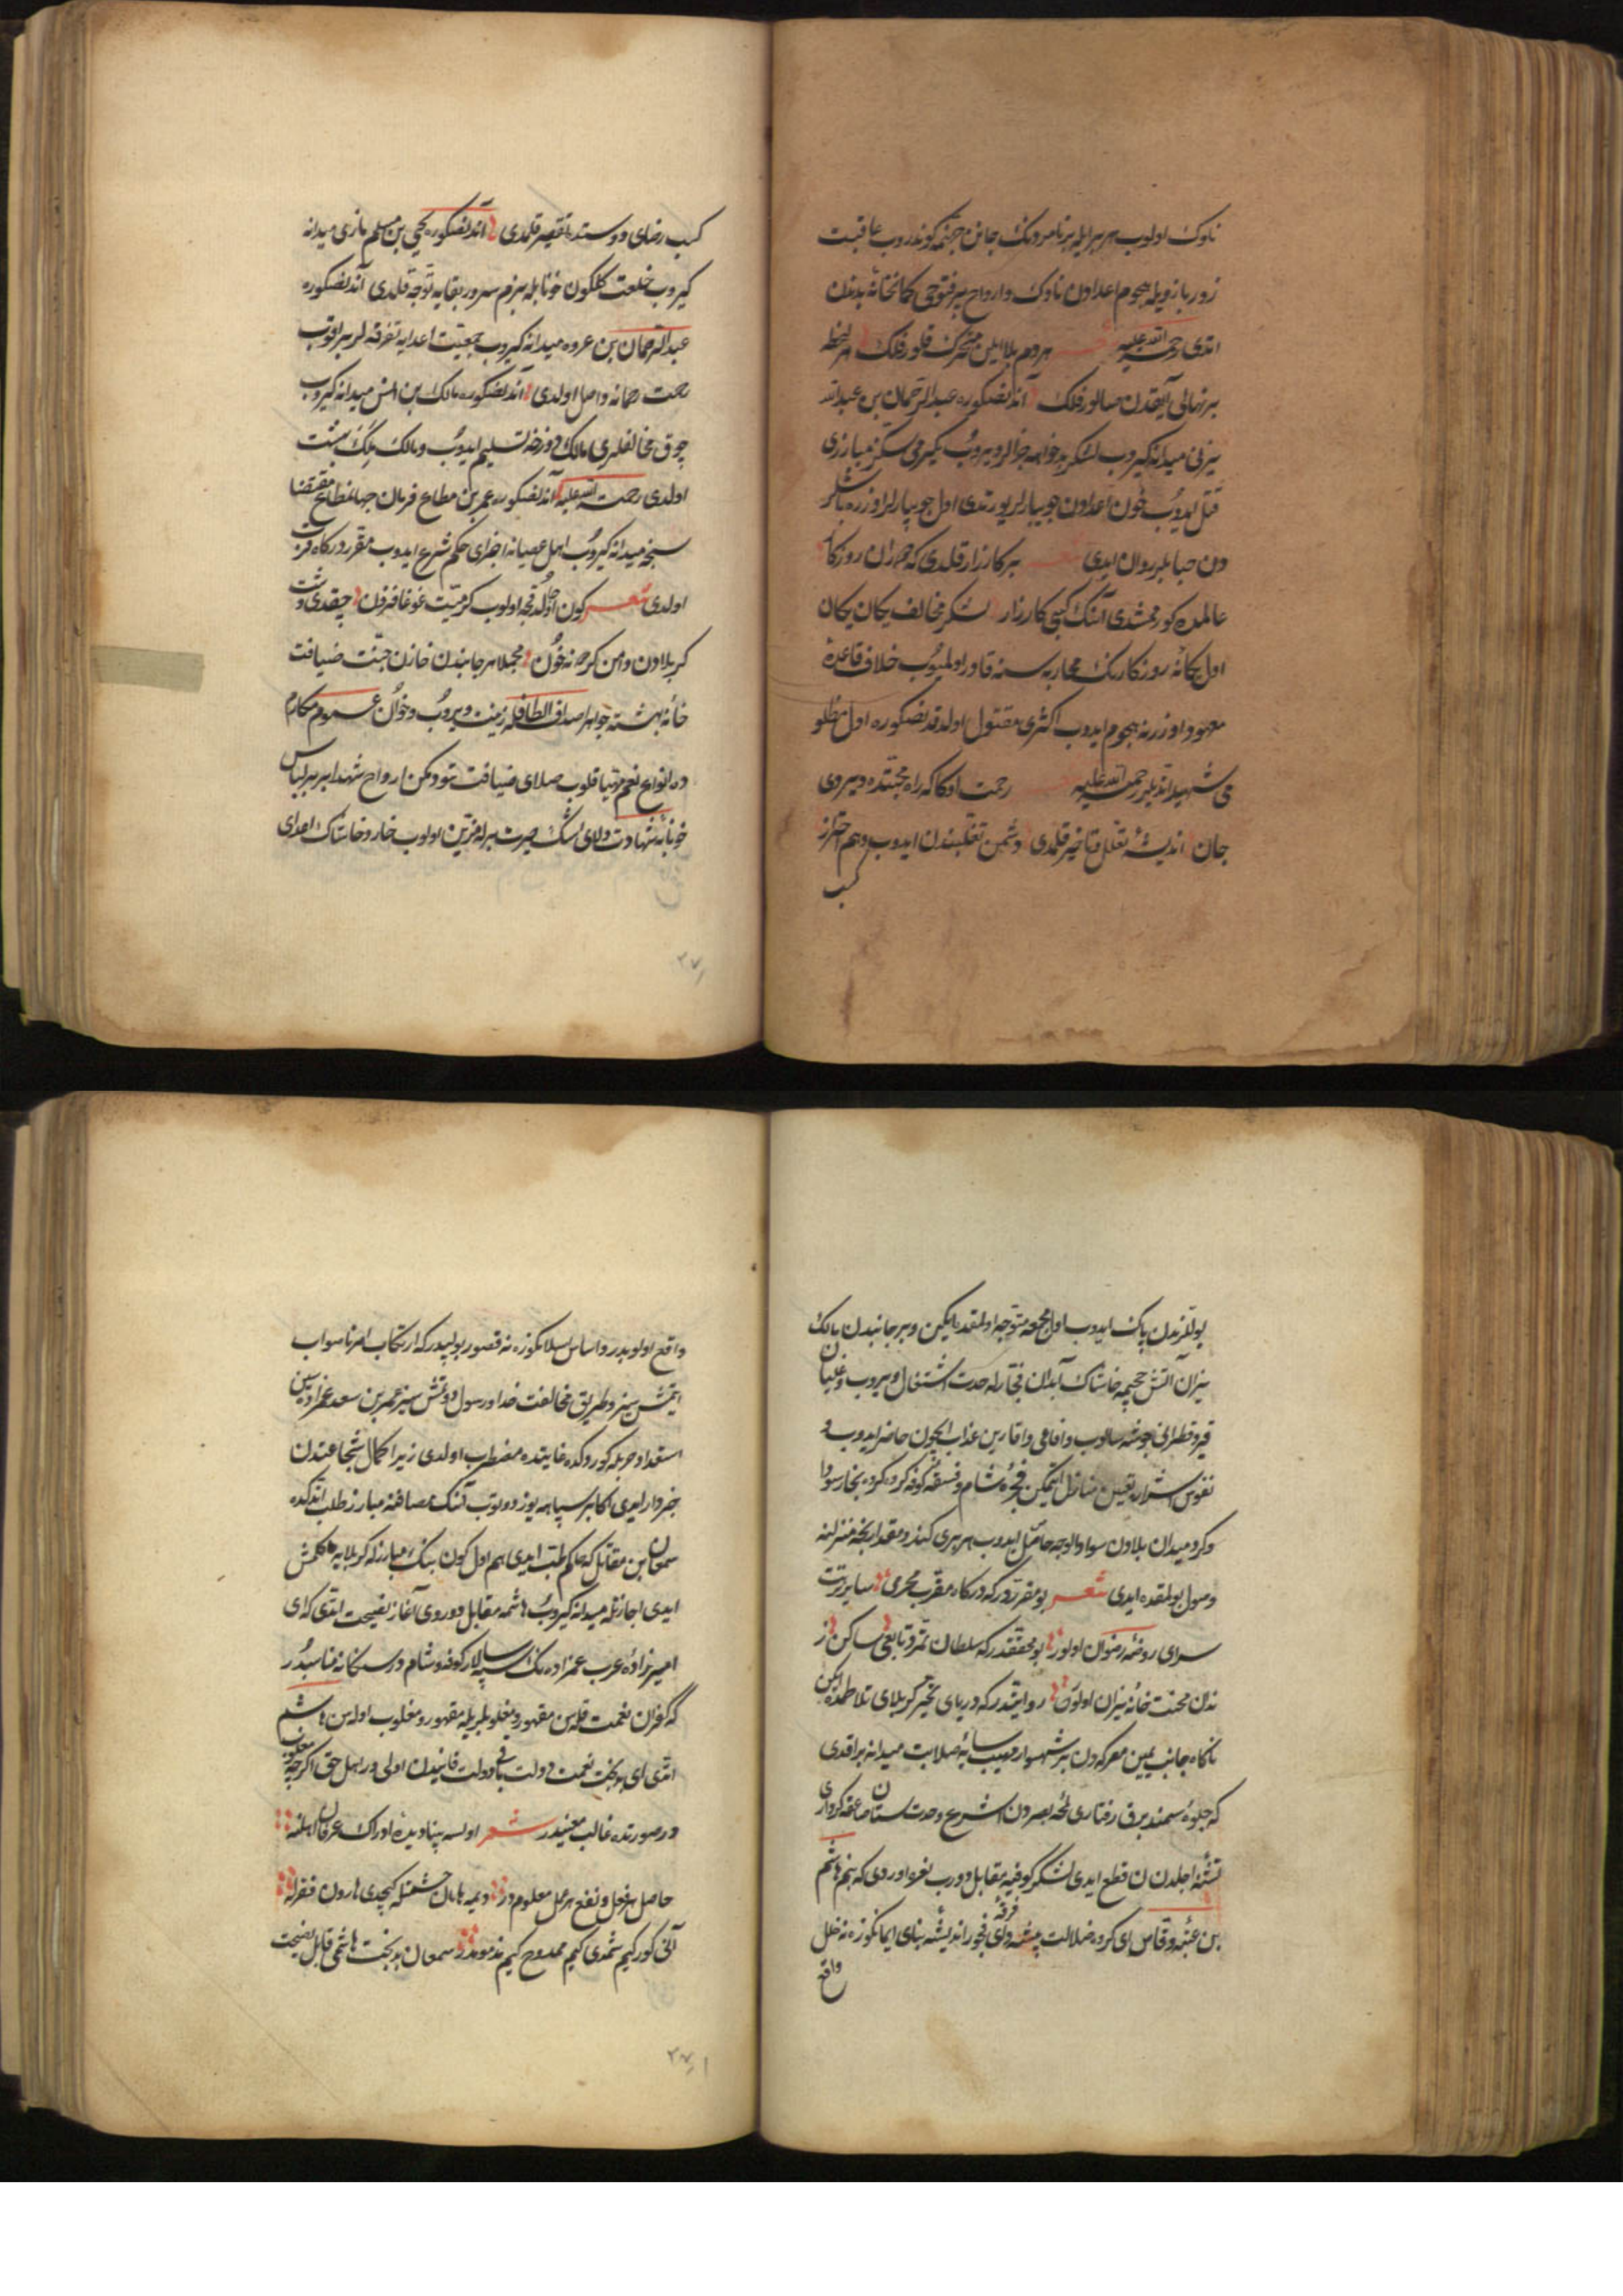 ناوك اولوب هر بر ايله بر نامردنك جانن جهنمه كوندروب عاقبت
زور بازويله هجوم اعدادن ناوك وارواح بر فتوحى كمانخانهٔ بدندن
اتدى رحمة الله عليه شعر هر دم بلا ايلن متحرك قلور فلك هر لحظه
بر نهالى آيقدن صالور فلك آندنصكره عبد الرحمان بن عبد الله
يزنى ميدانه كيروب لشكر بدخواهه جزالر ويروب يكرمى سكز مبارزى
قتل ايدوب خون اعدادن جويبارلر يورتدى اول جويبارلر اوزره باشلر
دن حبابلر روان ايدى شعر بر كارزار قلدى كه هركز روزكار
عالمده كورمشدى آنك كبى كارزار لشكر مخالف يكان يكان
اول يكانهٔ روزكارنك محاربه سنه قادر اولميوب خلاف قاعدهٔ
معهود اوزرينه هجوم ايدوب اكثرى مقتول اولدقدنصكره اول مظلو
مى شهيد اتديلر رحمة الله عليه شعر رحمت اوكا كه راه محبتده ويردى
جان انديشهٔ تعلل و تأخير قلمدى دشمن تغلبندن ايدوب وهم و احتراز
كسب
كسب رضاى دوستده تقصير قلمدى آندنصكره يحيى بن مسلم مازنى ميدانه
كيروب خلعت كلكون خونابله بزم سرور بقايه توجه قلدى آندنصكره
عبد الرحمان بن عروه ميدانه كيروب جمعيت اعدايه تفرقه لر براقوب
رحمت رحمانه واصل اولدى آندنصكره مالك بن انس ميدانه كيروب
چوق مخالفلرى مالك دوزخه تسليم ايدوب و مالك ملك بهشت
اولدى رحمة الله عليه آندنصكره عمر بن مطاع فرمان جهانمطاع مقتضا
سنجه ميدانه كيروب اهل عصيانه اجراى حكم شرع ايدوب مقرر دركاه قربت
اولدى شعر كون اولدقجه اولوب كرميت غوغا فزون چيقدى دشت
كربلادن دامن كردونه خون مجملا هر جانبدن خازن جنت ضيافت
خانهٔ بهشته جواهر اصداف الطافله زينت ويروب و خوان عموم مكارم
ده انواع نعم مهيا قلوب صلاى ضيافت تدوكن ارواح شهدا بر بر لباس
خونابهٔ شهادت و لاى اشك حسرت برله مزين اولوب خار و خاشاك اعداى
۲۷۰
يوللرندن پاك ايدوب اول مجمعه متوجه اولمقده ايكن و بر جانبدن مالك
نيران آتش جحيمه خاشاك ابدان فجارله حدت اشتعال ويروب و غليان
قير و قطرانى جوشه سالوب و افاعى و اقاربن عذاب ايچون حاضر ايدوب و
نفوس اشراره تعيين منازل اتمكين فجرهٔ شام و فسقهٔ كوفه كروه كروه بخار سودا
و كرد ميدان بلادن سواد الوجه حاصل ايدوب هر برى كندو مقدارنجه منزلنه
وصول بولمقده ايدى شعر بو مقرردر كه دركاه مقرب محرمى ساير تربت
سراى روضهٔ رضوان اولور بو محققدر كه سلطان تمرد تابعى ساكن ز
ندن محنت خانهٔ نيران اولور روايتدر كه درياى تحير كربلاى تلاطمده ايكن
ناكاه جانب يمين معركه دن بر شهسوار مهيب سايهٔ صلابت ميدانه براقدى
كه جلوهٔ سمند برق رفتارى لمحهٔ بصردن اشرع و حدت سنان صاعقه كردارى
تشنهٔ اجلدن قطع ايدى لشكر كوفيه مقابل دوروب نعره اوردى كه بنم هاشم
بن عتبه وقاص اى كروه ضلالت پيشه و اى فرقهٔ فجور انديشه بناى ايمانكوزه نه خلل
واقع
واقع اولوبدر و اساس اسلامكوزه نه قصور بولبدر كه ارتكاب امر ناصواب
ايتمش سز و طريق مخالفت خدا و رسول دوتمش سز عمر بن سعد عمزاده سين
استعداد حربله كوروكده غايتده مضطرب اولدى زيرا كمال شجاعتندن
خبردار ايدى اكابر سپاهه يوز دوتوب آنك مصافنه مبارز طلب اتدكده
سمعان بن مقاتل كه حاكم حلب ايدى هم اول كون بيك مبارزله كربلايه كلمش
ايدى اجازتله ميدانه كيروب هاشمه مقابل دوروى آغاز نصيحت اتدى كه اى
اميرزادهٔ عرب عمزاده نك اسپه سالار كوفه و شام در سكا نه مناسبدر
كه كفران نعمت قلاسن مقهور و مغلوبلريله مقهور و مغلوب اولاسن هاشم
اتدى اى بدبخت نعمت دولت باقى دولت فانيدن اولى در اهل حق اكرچه مغلوب
در صورتده غالب معنيدر شعر اولسه بينا ديدهٔ ادراك عرفان اهلنه
حاصل هر فعل و نفع هر عمل معلومدر ديمه هامان حشمتله كچدى هارون فقرله
آنى كور كيم شمدى كيم ممدوح كيم مذمومدر سمعان بدبخت هاشمى قابل نصيحت
۲۷۱